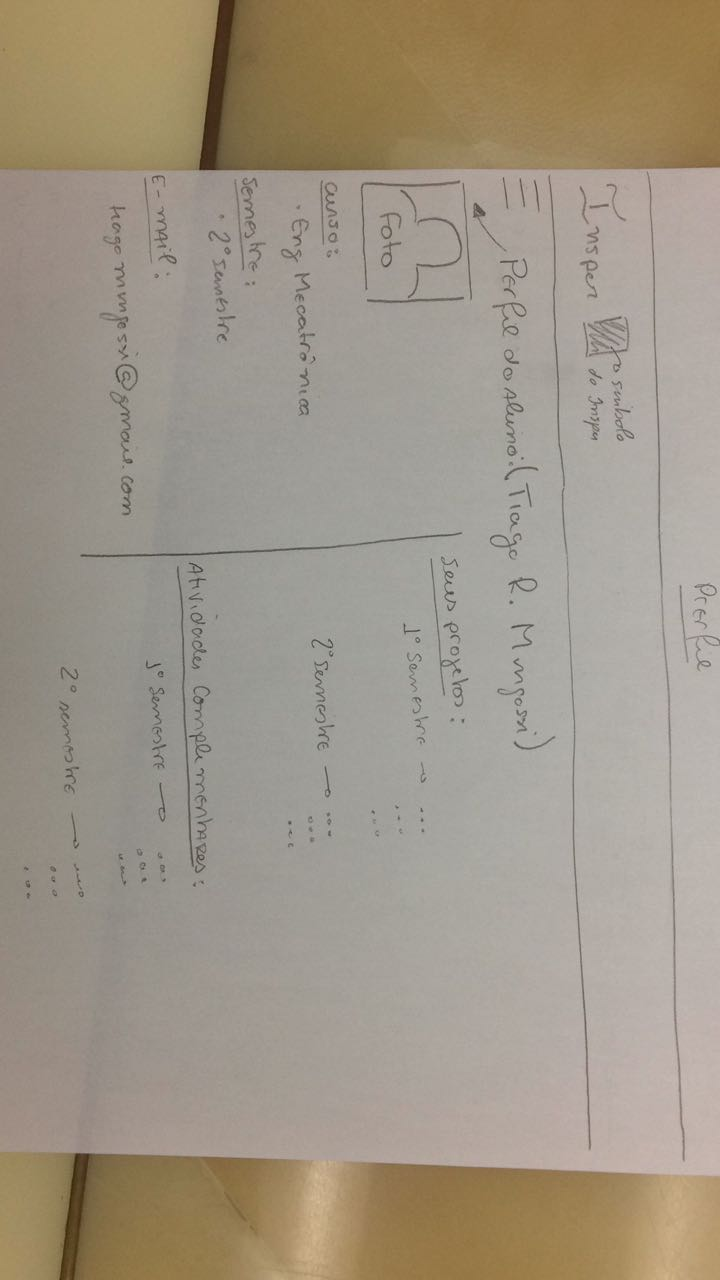 Perfil
Insper → símbolo
do Insper
Perfil do Aluno: (Tiago R. Mungossi)
Foto
Curso:
· Eng Mecatrônica
Semestre:
· 2° semestre
E-mail:
tiagomungossi@gmail.com
Seus projetos:
1° Semestre → ...
...
...
2° Semestre → ...
...
...
Atividades Complementares:
1° Semestre → ...
...
...
2° semestre → ...
...
...